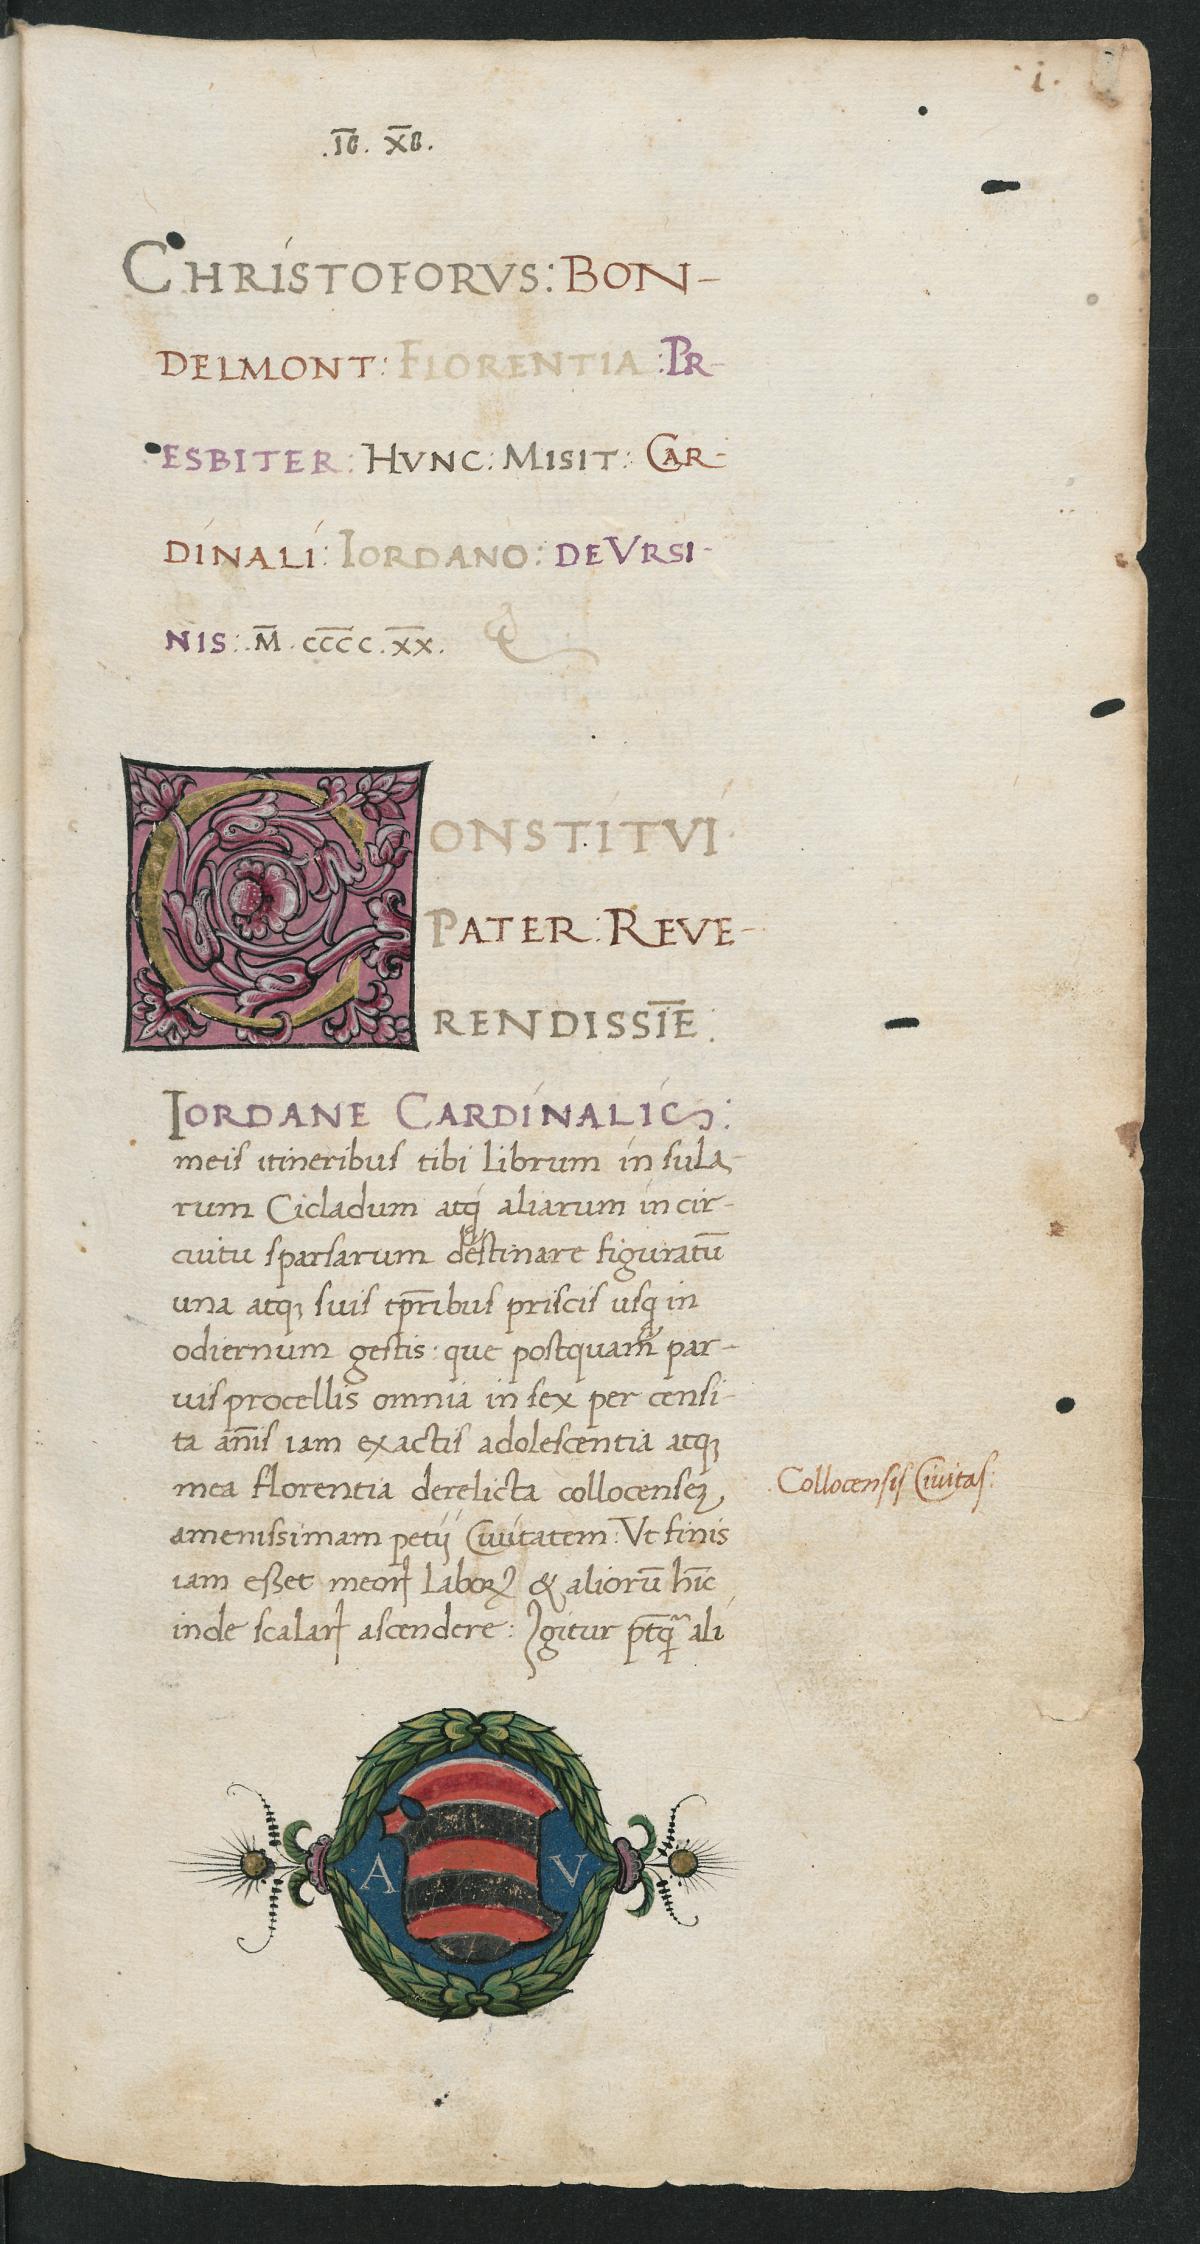 .i.
.IC̅. XC̅.
CHRISTOFORVS: BON-
DELMONT: FLORENTIA: PR-
ESBITER: HVNC: MISIT: CAR-
DINALI: IORDANO: DE VRSI-
NIS: .M̅. CCCC. X̅X̅.
CONSTITVI
PATER: REVE-
RENDISSI̅E:
IORDANE CARDINALIS:
meis itineribus tibi librum insula-
rum Cicladum atq́ aliarum incir-
cuitu sparsarum destinare figuratū
una atqꝫ suis tp̄ribus priscis usq in
odiernum gestis: que postquam par-
uis procellis omnia in sex per censi-
ta an̄is iam exactis adolescentia atqꝫ
mea florentia derelicta collocenseꝫ
Collocensis Ciuitas:
amenissimam petij Ciuitatem: Vt finis
iam esset meoꝝ laboꝝ & aliorū hīc
inde scalaꝝ ascendere: Igitur pt̄q̃ ali
A V